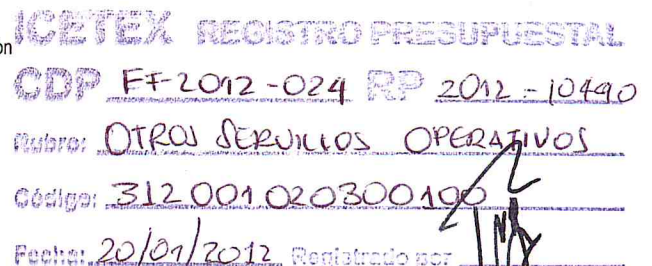 on
ICETEX REGISTRO PRESUPUESTAL
CDP EF-2012-024 RP 2012-10490
Rubro: OTROS SERVICIOS OPERATIVOS
Código: 312001020300100
Fecha: 20/01/2012 Registrado por